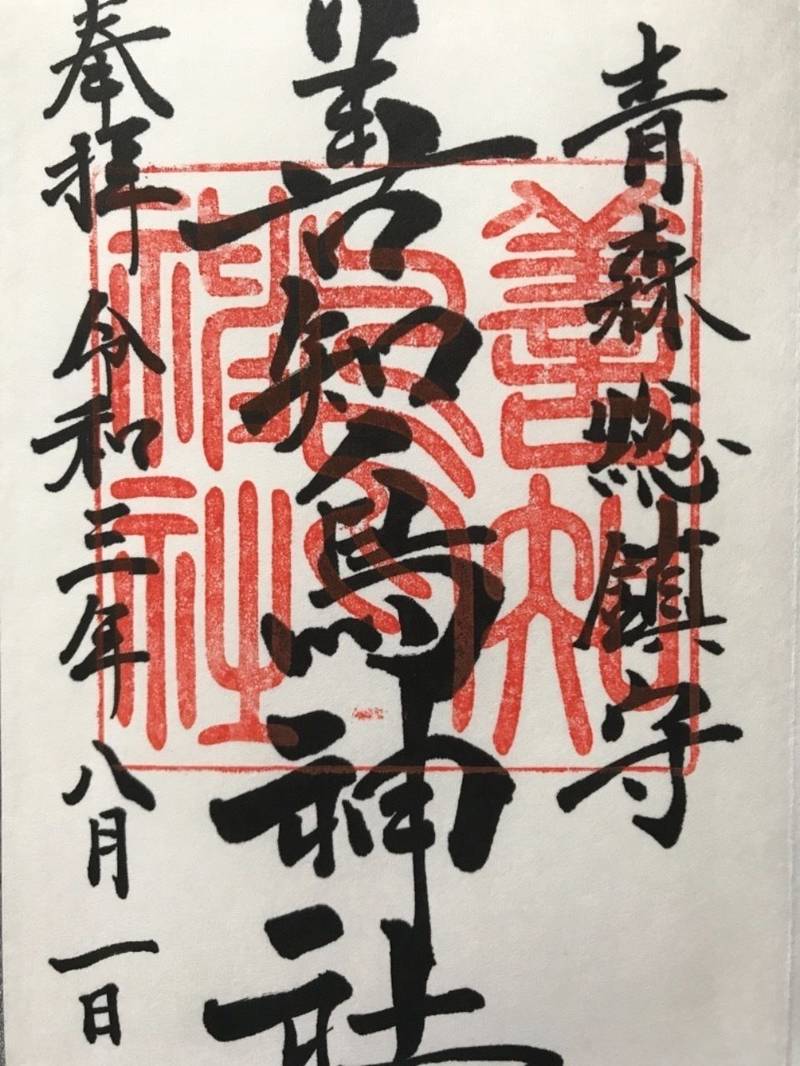 青森総鎮守
善知鳥神社
奉拝 令和三年 八月一日
善知鳥神社